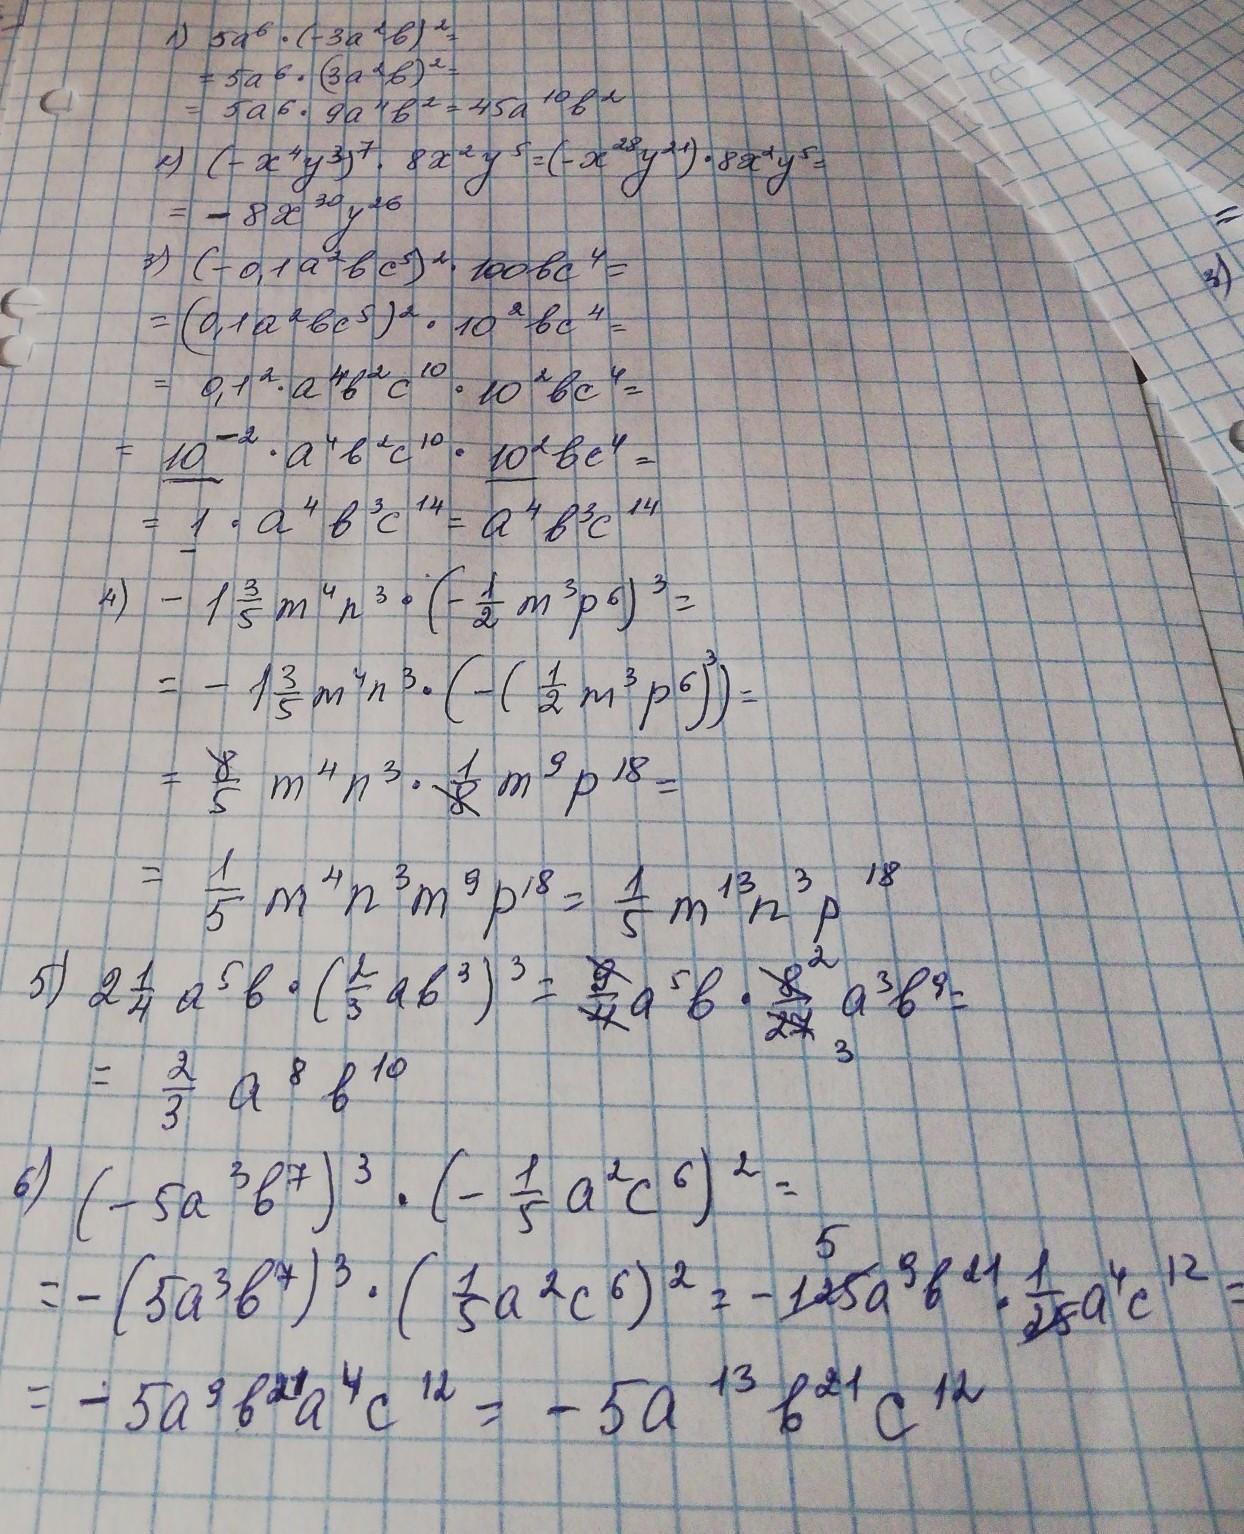 1) 5a⁶ · (-3a²b)² =
= 5a⁶ · (3a²b)² =
= 5a⁶ · 9a⁴b² = 45a¹⁰b²
2) (-x⁴y³)⁷ · 8x²y⁵ = (-x²⁸y²¹) · 8x²y⁵ =
= -8x³⁰y²⁶
3) (-0,1a²bc⁵)² · 100bc⁴ =
= (0,1a²bc⁵)² · 10²bc⁴ =
= 0,1² · a⁴b²c¹⁰ · 10²bc⁴ =
= 10⁻² · a⁴b²c¹⁰ · 10²bc⁴ =
= 1 · a⁴b³c¹⁴ = a⁴b³c¹⁴
4) -1 3/5 m⁴n³ · (-1/2 m³p⁶)³ =
= -1 3/5 m⁴n³ · (-(1/2 m³p⁶)³) =
= 8/5 m⁴n³ · 1/8 m⁹p¹⁸ =
= 1/5 m⁴n³m⁹p¹⁸ = 1/5 m¹³n³p¹⁸
5) 2 1/4 a⁵b · (2/3 ab³)³ = 9/4 a⁵b · 8/27 2 3 a³b⁹ =
= 2/3 a⁸b¹⁰
6) (-5a³b⁷)³ · (-1/5 a²c⁶)² =
= -(5a³b⁷)³ · (1/5 a²c⁶)² = -125 5 a⁹b²¹ · 1/25 a⁴c¹² =
= -5a⁹b²¹a⁴c¹² = -5a¹³b²¹c¹²
=
3)